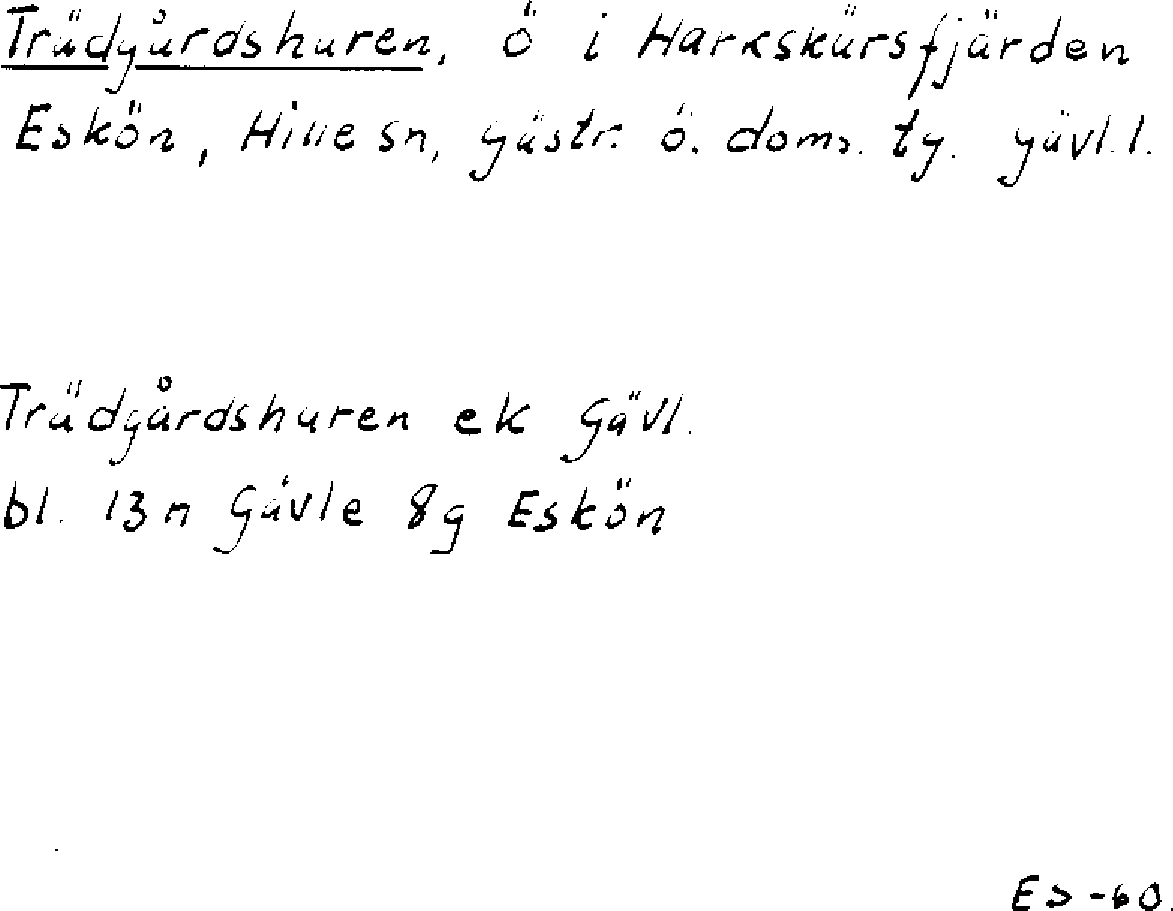 Trädgårdsharen, ö i Harkskärsfjärden
Eskön, Hille sn, Gästr. ö. doms. tg. Gävl. l.
Trädgårdsharen ek Gävl.
bl. 13n Gävle 8g Eskön
ES -60.